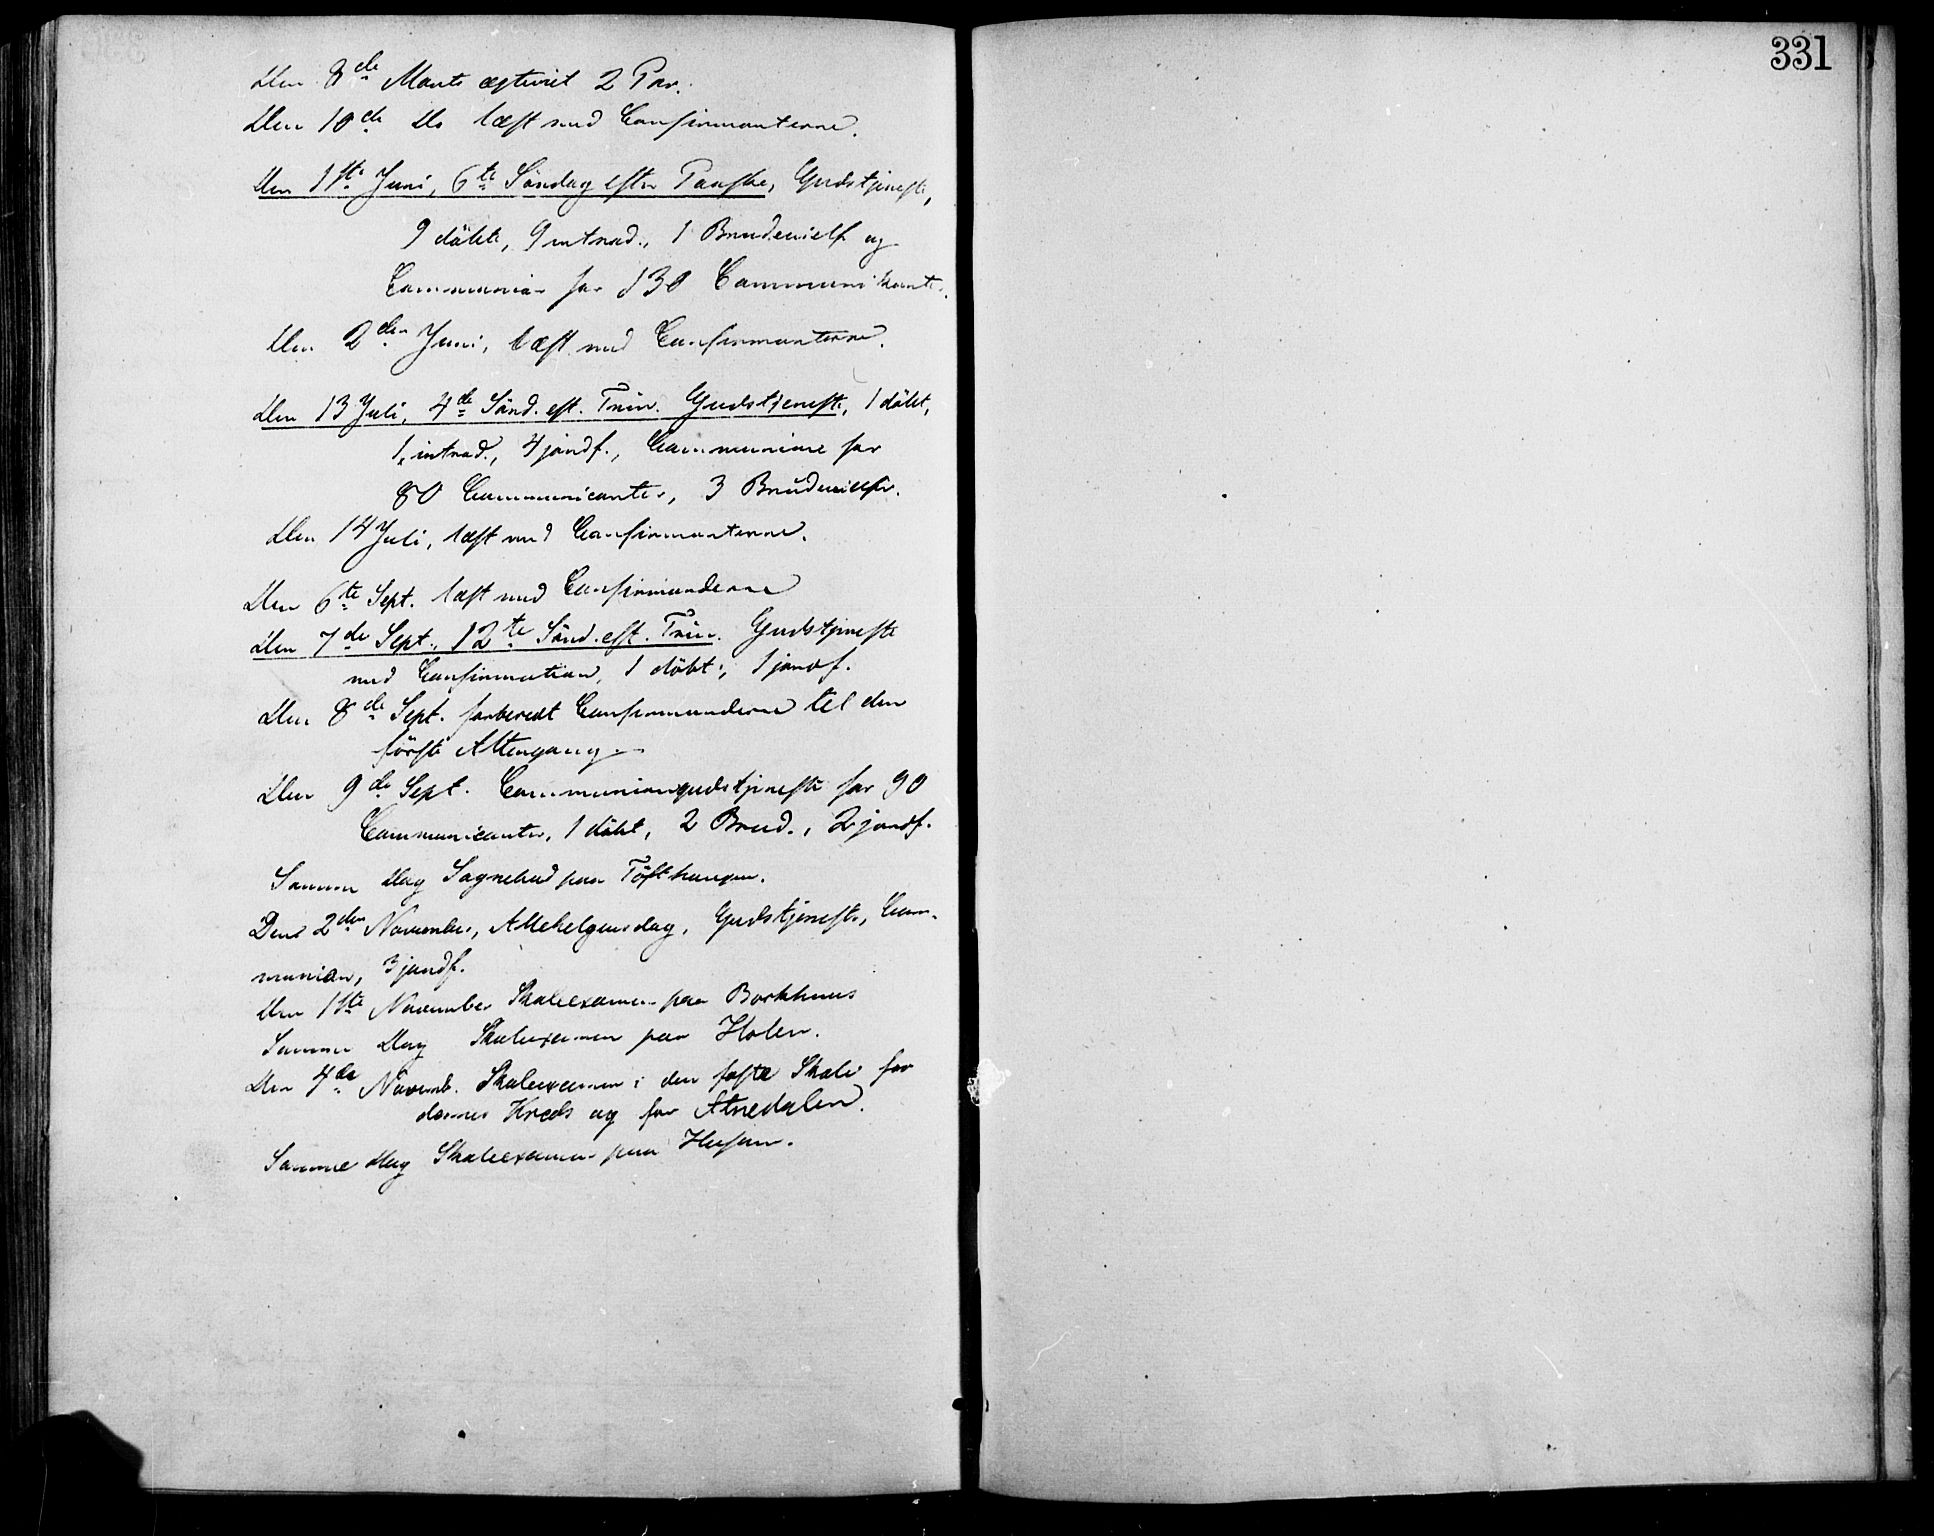 Den 8de Marts ægteviet 2 Par.
Den 10de Do læst med Confirmanterne.
Den 1ste Juni, 6te Söndag efter Paaske, Gudstjeneste,
9 döbte, 9 introd., 1 Brudevielse og
Communion for 130 Communikanter.
Den 2den Juni, læst med Confirmanterne.
Den 13 Juli, 4de Sönd. eft. Trin. Gudstjeneste, 1 döbt,
1 introd., 4 jordf., Communion for
80 Communicanter, 3 Brudevielser.
Den 14 Juli, læst med Confirmanterne.
Den 6te Sept. læst med Confirmanderne
Den 7de Sept., 12te Sönd. eft. Trin. Gudstjeneste
med Confirmation, 1 döbt, 1 jordf.
Den 8de Sept. forberedt Confirmanderne til den
förste Altergang.
Den 9de Sept. Communiongudstjeneste for 90
Communicanter, 1 döbt, 2 Brud., 2 jordf.
Samme Dag Sognebud paa Töfthaugen.
Den 2den November, Allehelgensdag, Gudstjeneste, Com-
munion, 3 jordf.
Den 1ste November Skoleexamen paa Borkhuus
Samme Dag Skoleexamen paa Holen.
Den 4de Novemb. Skoleexamen i den faste Skole for
dennes Kreds og for Atnedalen.
Samme Dag Skoleexamen paa
331